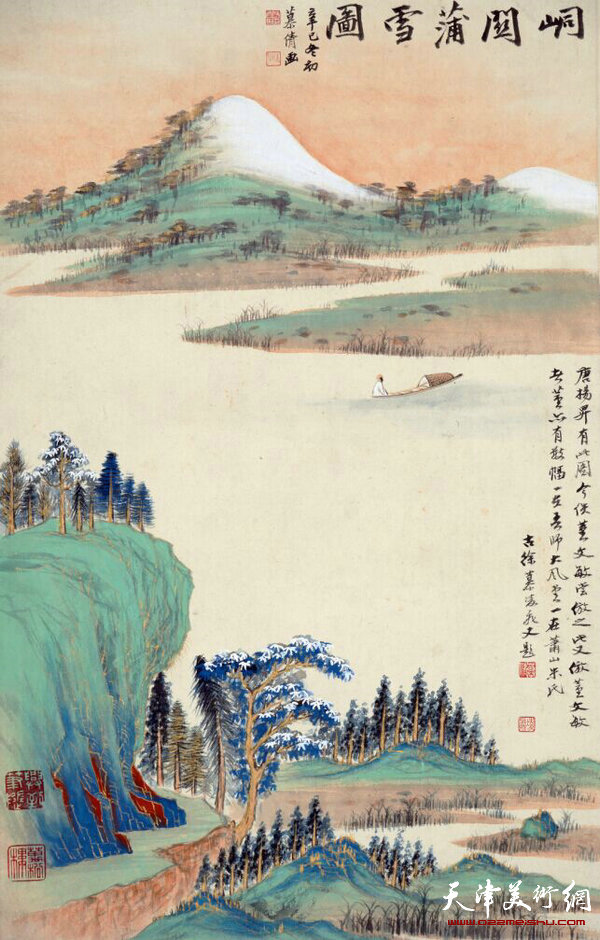 峒關蒲雪圖
辛巳冬初
慕倩畫
唐揚昇有此圖今佚董文敏嘗倣之此又倣董文敏
者董亦有數幅一在吾師大風堂一在蕭山朱氏
古徐慕凌飛又題
天津美術網
www.022meishu.com